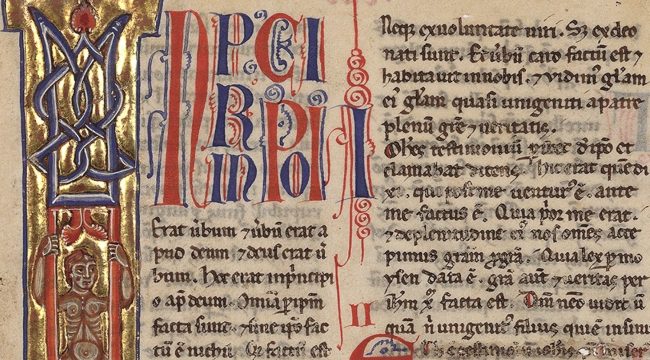 IN P CI
R PI
IN O
Erat ūbum ⁊ ūbū erat a
pud deum ⁊ deus erat ū
bum. Hoc erat inprincipi
o ap̄ deum. Om̄ia p ip̄m
facta sunt. ⁊ sine ip̄o fac
tū ē nichil. Qđ factū est
Neqꝫ exuoluntate uiri. Sꝫ exdeo
nati sunt. Et ūbū caro factū est ⁊
habitauit innobis. ⁊ uidimꝰ gl̄am
eiꝰ gl̄am quasi unigeniti apatre
plenum gr̄e ⁊ ueritatis.
Ioh̄es testimonium de ip̄o et
clamabat dicens. Hic erat quē di
xi. qui post me venturꝰ ē. ante
me factus ē. Quia p̄or me erat.
⁊ deplenitudine eiꝰ nos om̄es acce
pimus gr̄am ꝓ gr̄a. Quia lex ꝑ mo
ysen data ē. gr̄a aut̄ ⁊ ueritas per
ih̄m x̄ facta est. Dm̄ nēo uidit ū
quā n̄ unigenitꝰ filius qui ē insinu
II